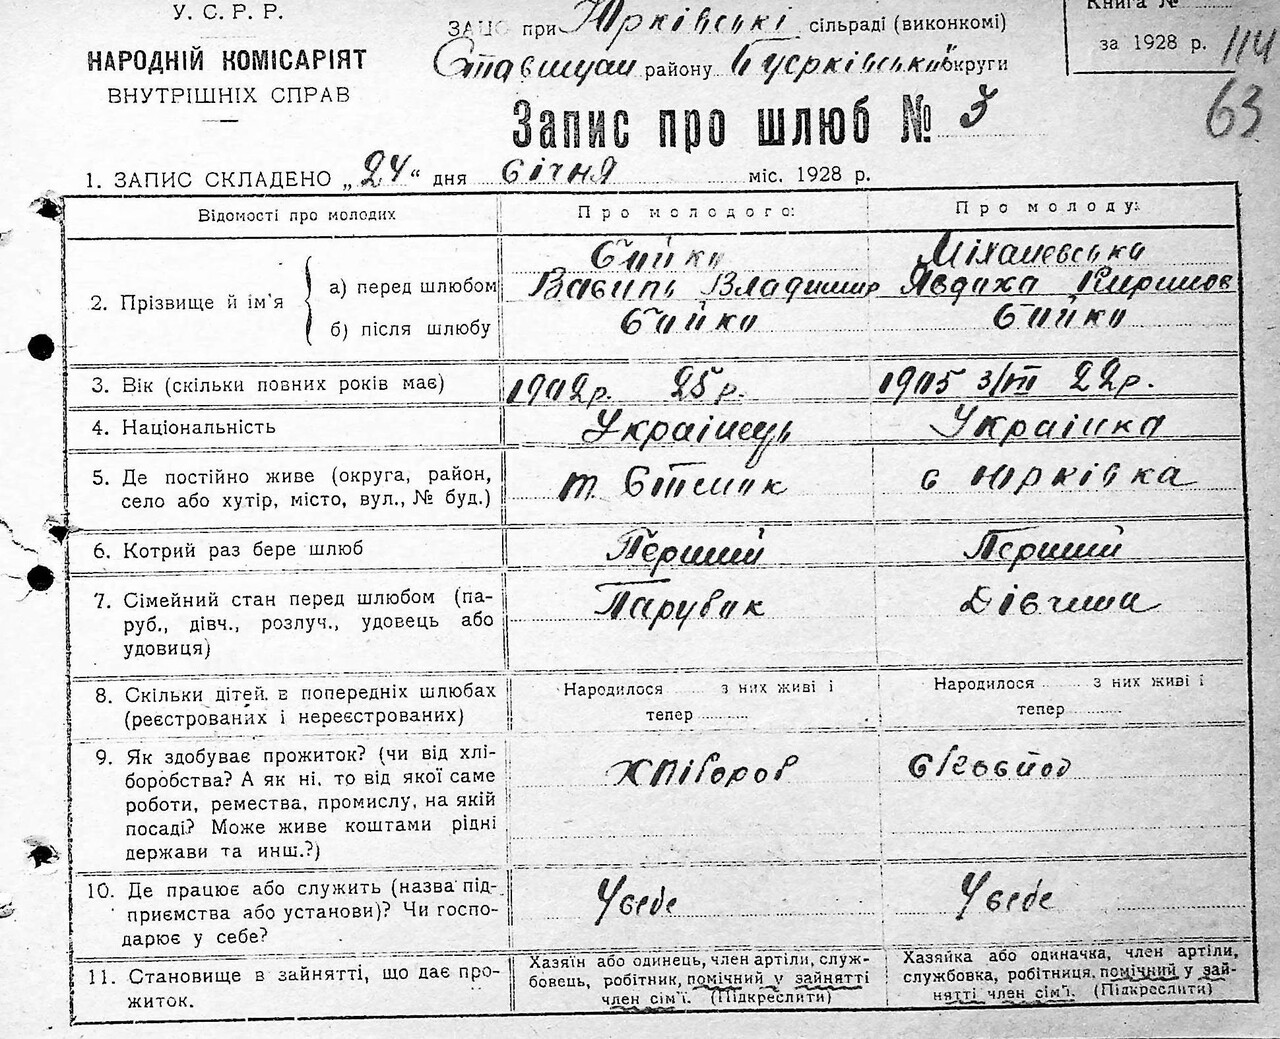 У. С. Р. Р.
НАРОДНІЙ КОМІСАРІЯТ
ВНУТРІШНІХ СПРАВ
ЗАЦС при Юрківські сільраді (виконкомі)
району округи
Книга №
за 1928 р. 114
63
Запис про шлюб № 3
1. ЗАПИС СКЛАДЕНО „24“ дня січня міс. 1928 р.
Відомості про молодих
Про молодого:
Про молоду:
2. Прізвище й ім'я
а) перед шлюбом
б) після шлюбу
Бойко
Василь Владимир
Бойко
Міхалевська
Явдоха Кирилов
Бойко
3. Вік (скільки повних років має)
1902 р. 25 р.
1905 3/VIII 22 р.
4. Національність
Українець
Українка
5. Де постійно живе (округа, район,
село або хутір, місто, вул., № буд.)
с Юрківка
6. Котрий раз бере шлюб
Перший
Перший
7. Сімейний стан перед шлюбом (па-
руб., дівч., розлуч., удовець або
удовиця)
Парубок
Дівчина
8. Скільки дітей в попередніх шлюбах
(реєстрованих і нереєстрованих)
Народилося з них живі і
тепер
Народилося з них живі і
тепер
9. Як здобуває прожиток? (чи від хлі-
боробства? А як ні, то від якої саме
роботи, ремества, промислу, на якій
посаді? Може живе коштами рідні
держави та инш.?)
Хлібороб
10. Де працює або служить (назва під-
приємства або установи)? Чи госпо-
дарює у себе?
У себе
У себе
11. Становище в зайнятті, що дає про-
житок.
Хазяїн або одинець, член артіли, служ-
бовець, робітник, помічний у зайнятті
член сім'ї. (Підкреслити)
Хазяйка або одиначка, член артіли,
службовка, робітниця, помічний у зай-
нятті член сім'ї. (Підкреслити)